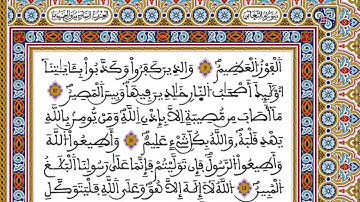 سورة التغابن
اَ۬لْفَوْزُ اُ۬لْعَظِيمُۖ وَالذِينَ كَفَرُواْ وَكَذَّبُواْ بِـَٔايَٰتِنَآ
أُوْلَٰٓئِكَ أَصْحَٰبُ اُ۬لنّ۪ارِ خَٰلِدِينَ فِيهَا وَبِيسَ اَ۬لْمَصِيرُۖ
مَآ أَصَابَ مِن مُّصِيبَةٍ اِلَّا بِإِذْنِ اِ۬للَّهِۖ وَمَنْ يُّومِنۢ بِاللَّهِ
يَهْدِ قَلْبَهُۥۖ وَاللَّهُ بِكُلِّ شَےْءٍ عَلِيمٞۖ وَأَطِيعُواْ اُ۬للَّهَ
وَأَطِيعُواْ اُ۬لرَّسُولَۖ فَإِن تَوَلَّيْتُمْ فَإِنَّمَا عَلَىٰ رَسُولِنَا اَ۬لْبَلَٰغُ
اُ۬لْمُبِينُۖ اُ۬للَّهُ لَآ إِلَٰهَ إِلَّا هُوَۖ وَعَلَى اَ۬للَّهِ فَلْيَتَوَكَّلِ